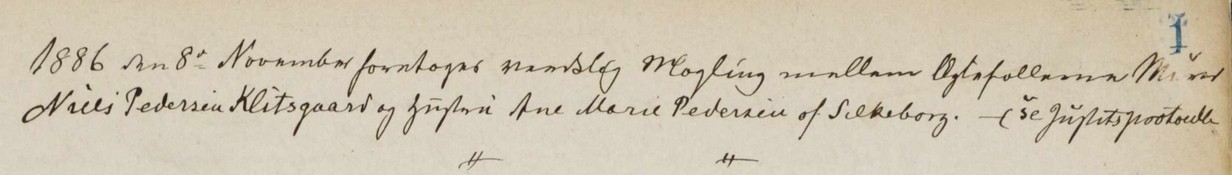 1
1886 den 8de November foretoges verdslig Mægling mellem Ægtefollerne Murer
Niels Pedersen Klitsgaard og Hustru Ane Marie Pedersen af Silkeborg. — (se Justitsprotocolle